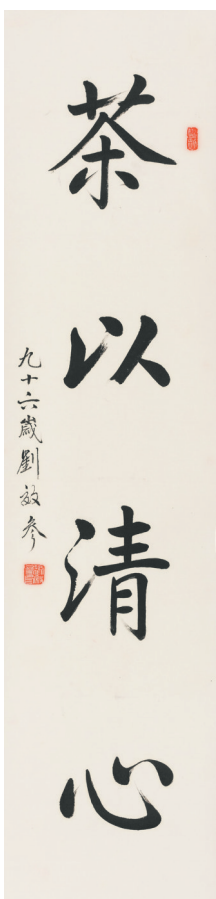 茶以清心
九十六歲劉敬參